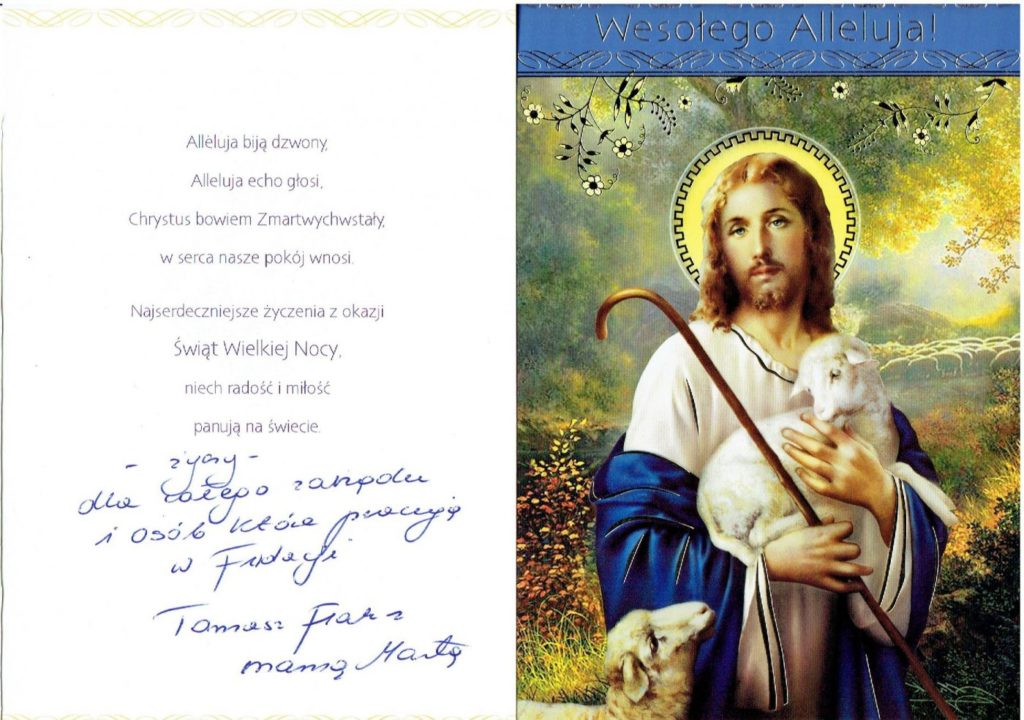 Alleluja biją dzwony,
Alleluja echo głosi,
Chrystus bowiem Zmartwychwstały,
w serca nasze pokój wnosi.
Najserdeczniejsze życzenia z okazji
Świąt Wielkiej Nocy,
niech radość i miłość
panują na świecie.
dla całego zarządu
i osób które pracują
w
Tomasz
mamą Martą
Wesołego Alleluja!